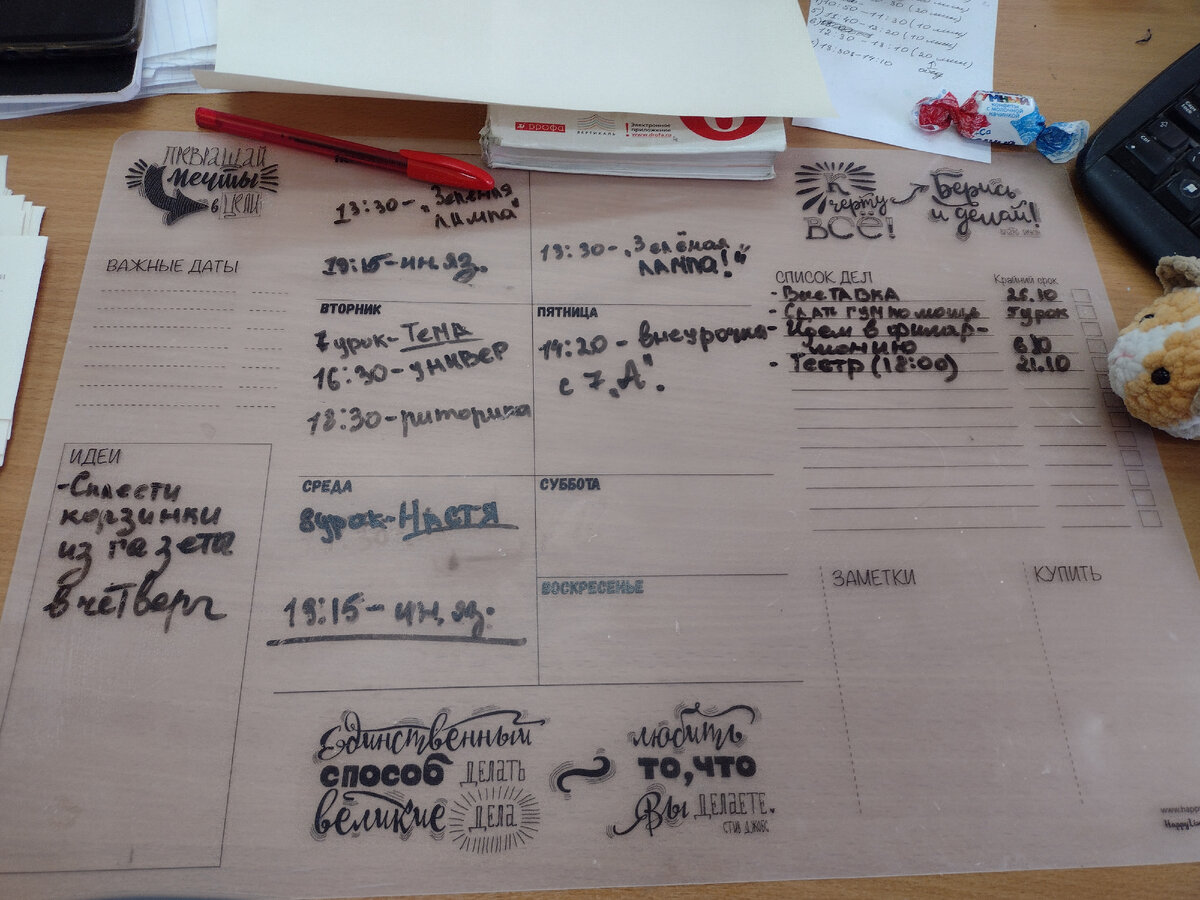 5) 11:40-12:20 (10 мин)
12:30-13:10 (20 мин)
обед
дрофа
ВЕРТИКАЛЬ
Электронное
приложение
www.drofa.ru
6
ПРЕВРАЩАЙ
мечты
в ЦЕЛИ
13:30- „Зеленая
лампа“
19:15-ин.яз.
13:30- „Зелёная
лампа!“
К
черту
ВСЁ!
Берись
и делай!
ВАЖНЫЕ ДАТЫ
СПИСОК ДЕЛ
Крайний срок
- Выставка 25.10
- Сдать гумпомощь 5 урок
- Идем в филар-
монию 6.10
- Театр (18:00) 21.10
ВТОРНИК
7 урок-Тема
16:30-универ
18:30-риторика
ПЯТНИЦА
14:20 - внеурочка
с 7 „А“.
ИДЕИ
-Сплести
корзинки
из газета
в четверг
СРЕДА
8 урок-Настя
19:15-ин.яз.
СУББОТА
ВОСКРЕСЕНЬЕ
ЗАМЕТКИ
КУПИТЬ
Единственный
способ ДЕЛАТЬ
великие ДЕЛА
~
любить
то, что
Вы ДЕЛАЕТЕ.
СТИВ ДЖОБС